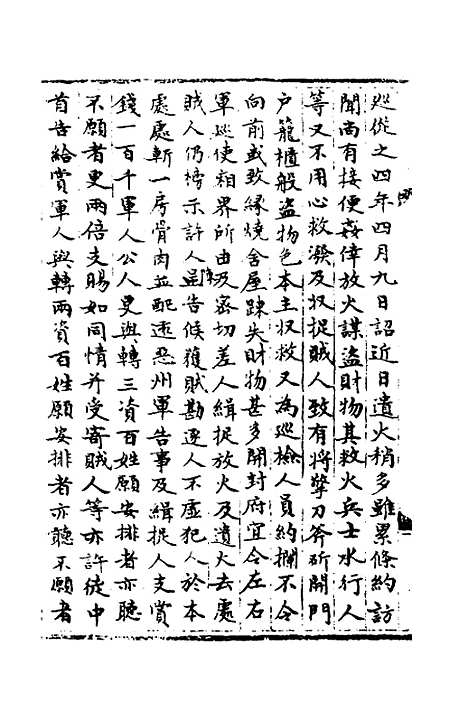 巡從之四年四月九日詔近日遺火稍多雖累條約訪
聞尚有接便姦倖放火謀盜財物其救火兵士水行人
等又不用心救潑及収捉賊人致有將擎刀斧斫開門
戶籠櫃般盜物色本主収救又為巡檢人員約攔不令
向前或致緣燒舍屋踈失財物甚多開封府宜令左右
軍廵使相界所由及密切差人緝捉放火及遺火去處
賊人仍牓示許人陳告候獲賊勘逐人不虛犯人於本
處處斬一房骨肉並配遠惡州軍告事及緝捉人支賞
錢一百千軍人公人更與轉三資百姓願安排者亦聽
不願者更兩倍支賜如同情并受寄賊人等亦許徒中
首告給賞軍人與轉兩資百姓願安排者亦聽不願者